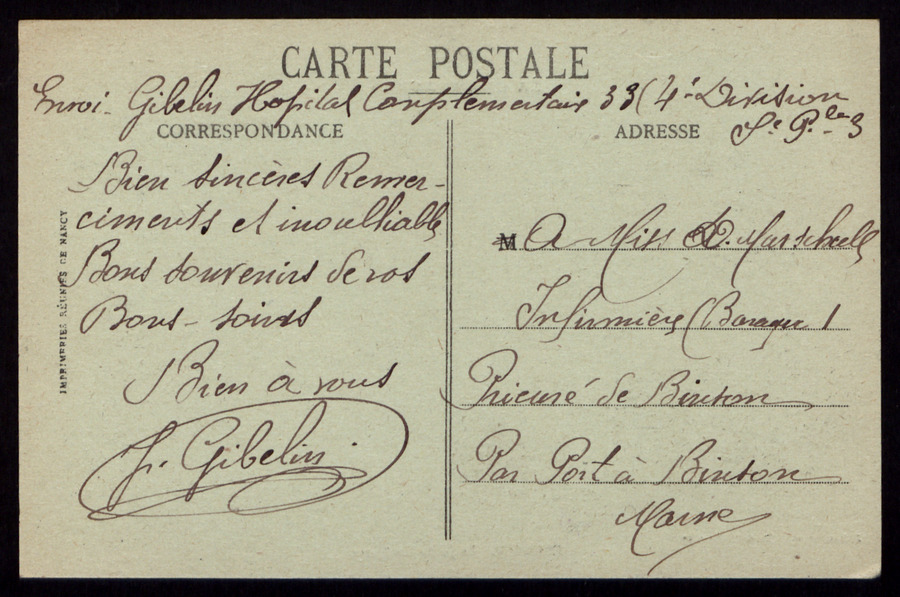 CARTE POSTALE
Envoi - Gibelin Hopital Complementair 33 (4è Division
Sle P. le 3
CORRESPONDANCE
Bien sincères Remer-
ciments et inoulliable
Bons souvenirs de vos
Bons - soins
Bien à vous
J. Gibelin.
IMPRIMERIES RÉUNIES DE NANCY
ADRESSE
M A Miss D. Marschall
Infirmière (Baraque 1
Prieuré de Binson
Par Port à Binson
Marne